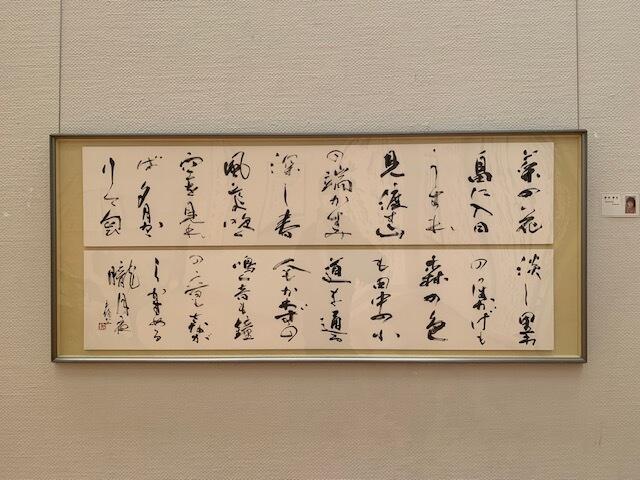 菜の花
畠に入日
うすれ
見渡す山
の端かすみ
深し春
風そよ吹く
空を見れ
ば夕月かか
りて匂
淡し里わ
のほかげも
森の色
も田中の小
道を
人もかわずの
鳴く音も鐘
の音もさなが
らかすめる
朧月夜